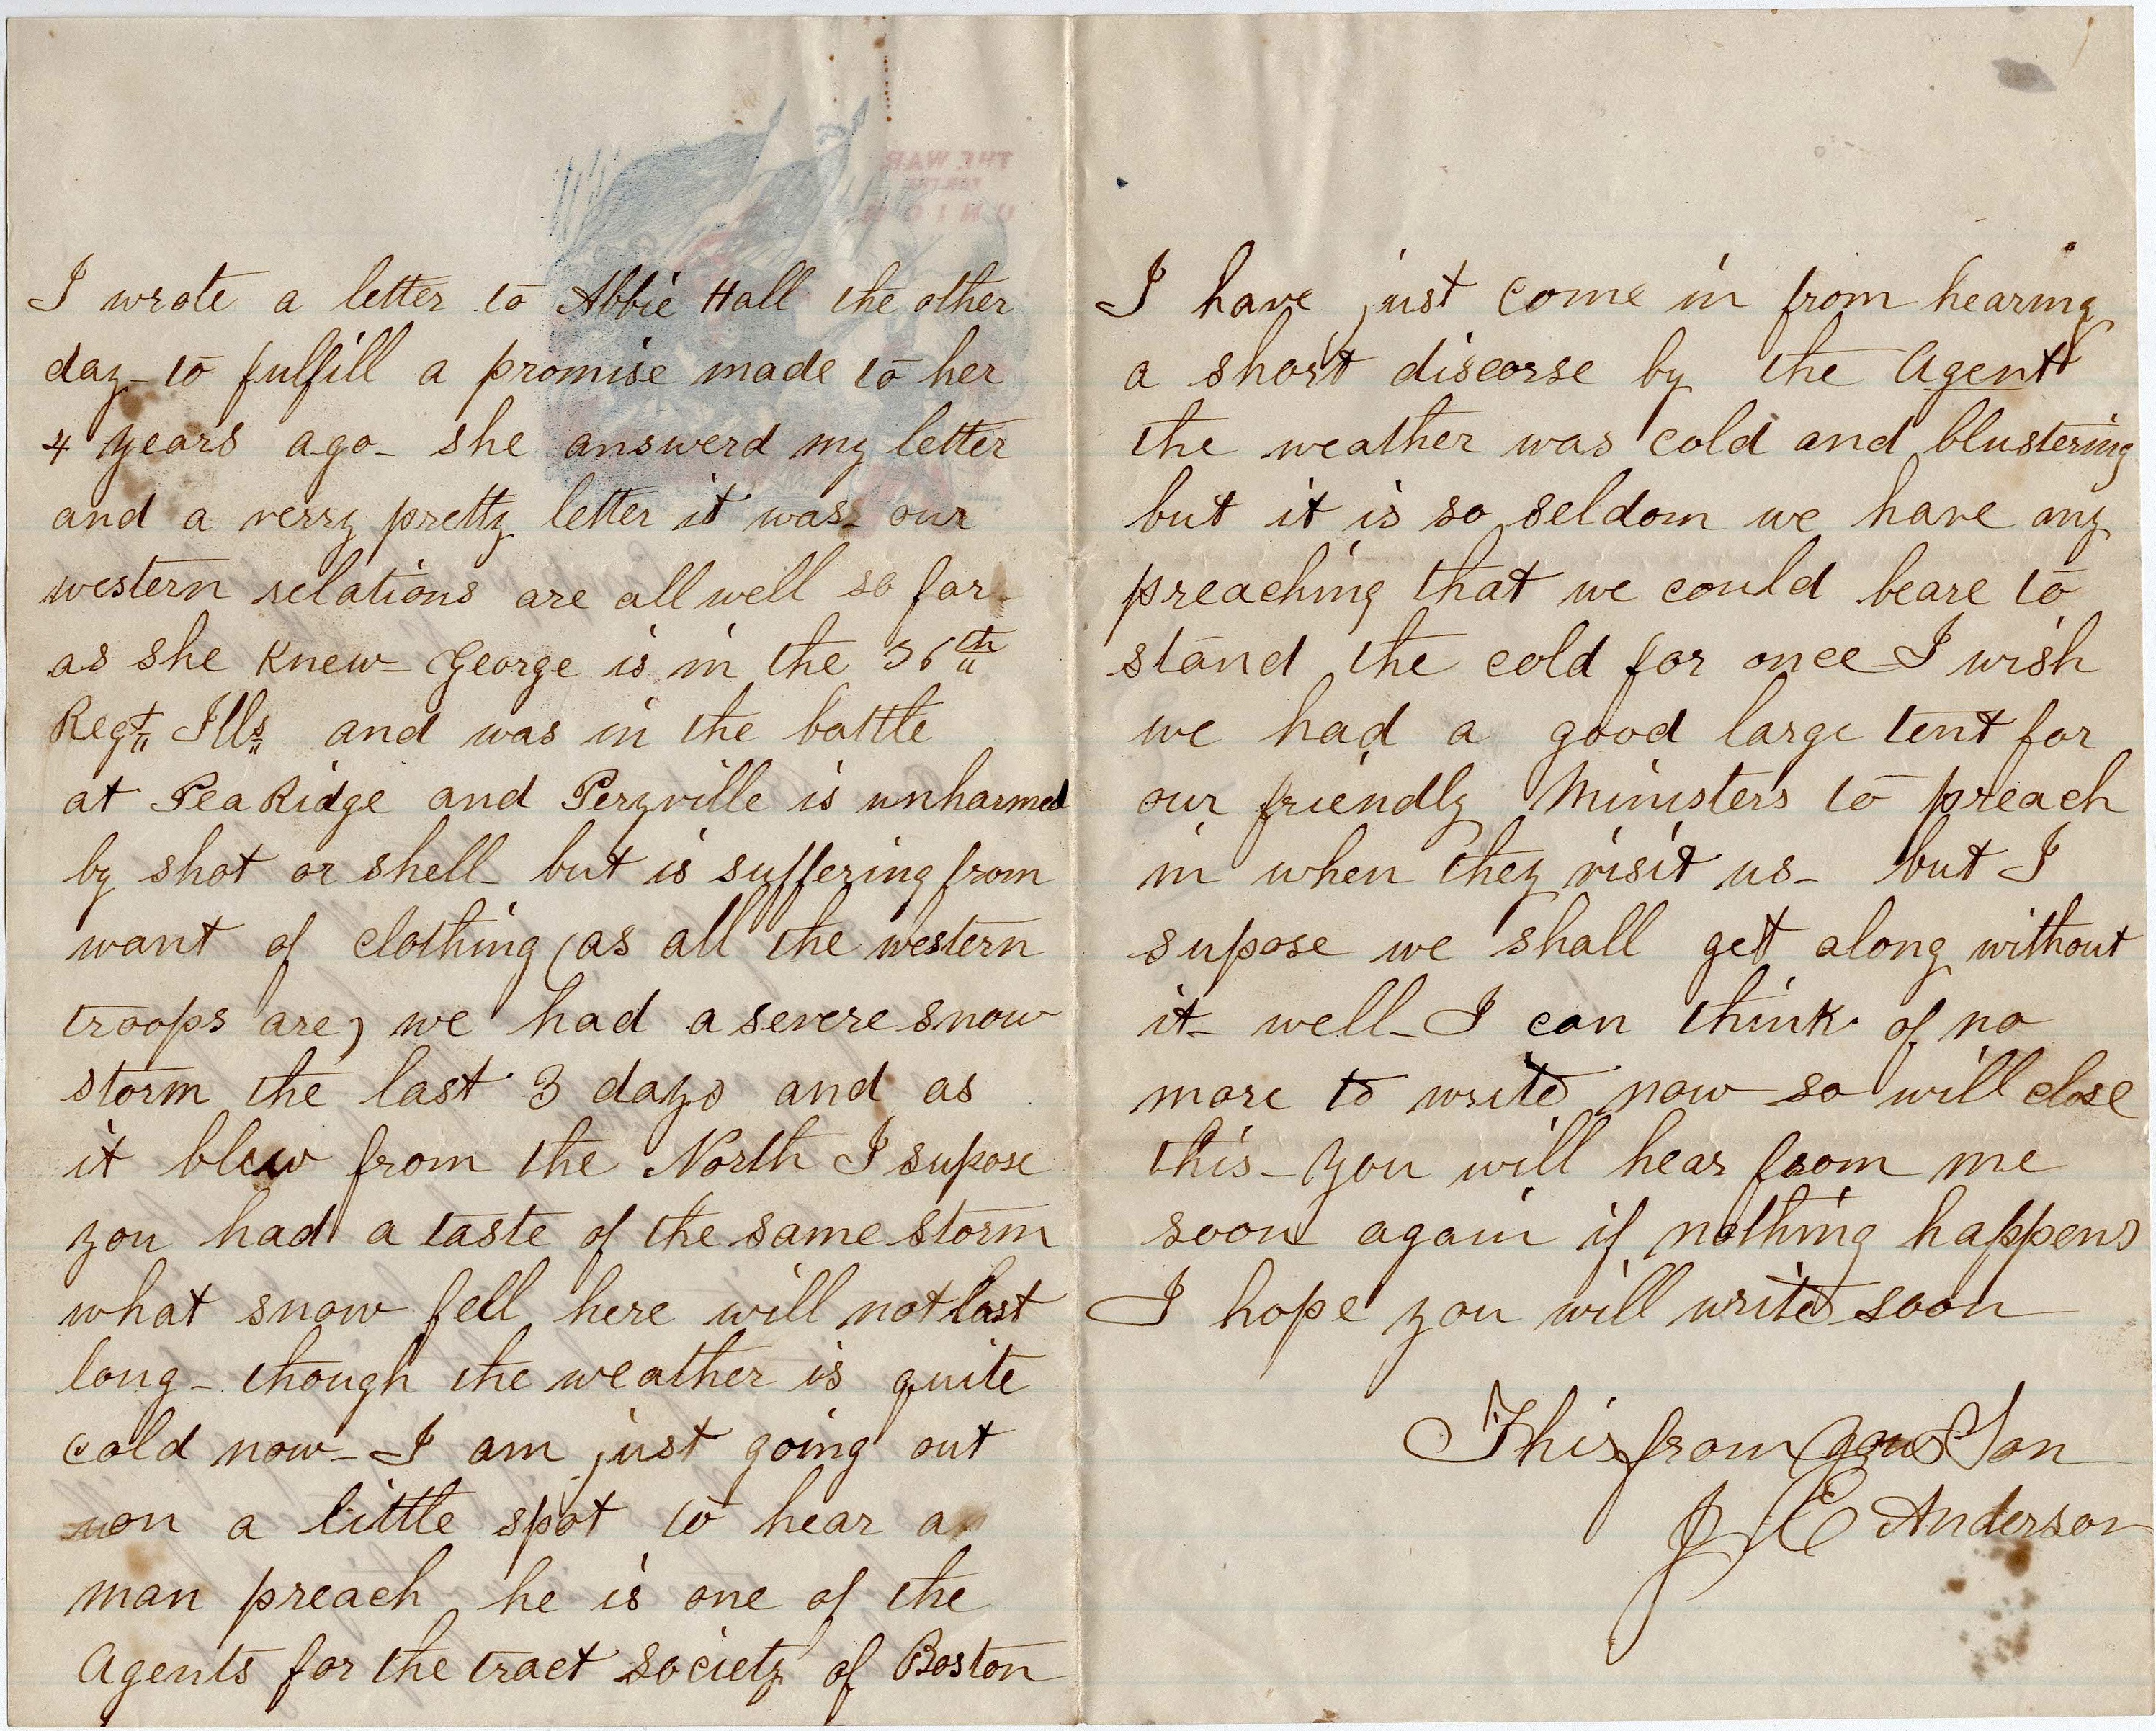 THE WAR
FOR THE
UNION
I wrote a letter to Abbie Hall the other
day to fulfill a promise made to her
4 years ago - she answerd my letter
and a verry pretty letter it was - our
western relations are all well so far
as she knew - George is in the 36th
Regt Ills and was in the battle
at Pea Ridge and Peryville is unharmed
by shot or shell - but is suffering from
want of clothing (as all the western
troops are) we had a severe snow
storm the last 3 days and as
it blew from the North I supose
you had a taste of the same storm
what snow fell here will not last
long - though the weather is quite
cold now - I am just going out
on a little spot to hear a
man preach he is one of the
Agents for the tract society of Boston
I have just come in from hearing
a short discorse by the Agent
the weather was cold and blustering
but it is so seldom we have any
preaching that we could beare to
stand the cold for once - I wish
we had a good large tent for
our friendly Ministers to preach
in when they visit us - but I
supose we shall get along without
it - well - I can think of no
more to write now so will close
this - you will hear from me
soon again if nothing happens
I hope you will write soon
This from your Son
J E Anderson